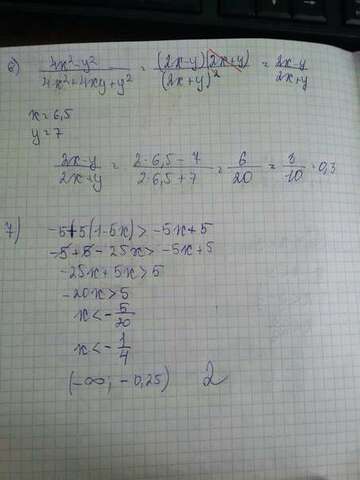 6) (4x²-y²)/(4x²+4xy+y²) = ((2x-y)(2x+y))/(2x+y)² = (2x-y)/(2x+y)
x=6,5
y=7
(2x-y)/(2x+y) = (2·6,5-7)/(2·6,5+7) = 6/20 = 3/10 = 0,3
7) -5+5(1-5x)>-5x+5
-5+5-25x>-5x+5
-25x+5x>5
-20x>5
x<-5/20
x<-1/4
(-∞; -0,25) 2